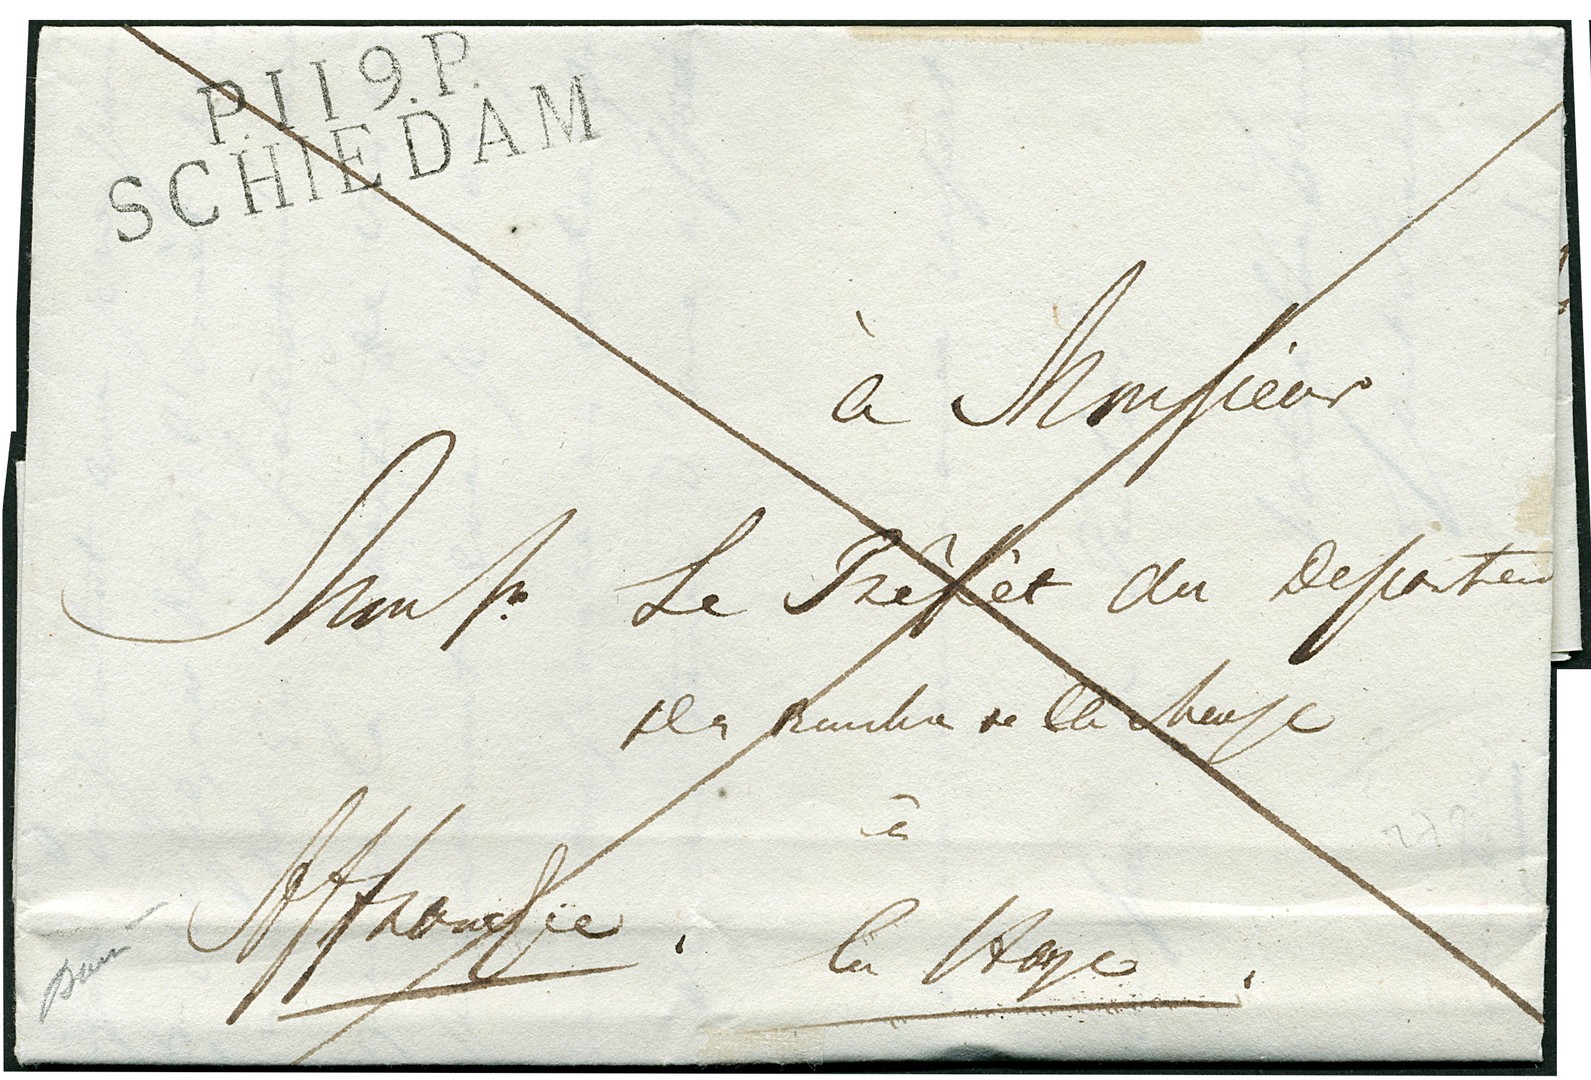 P.119.P.
SCHIEDAM
à Monsieur
Monsr. Le Préfèt du Departem
des bouches de la Meuse
à
la Haye.
Affranchie.